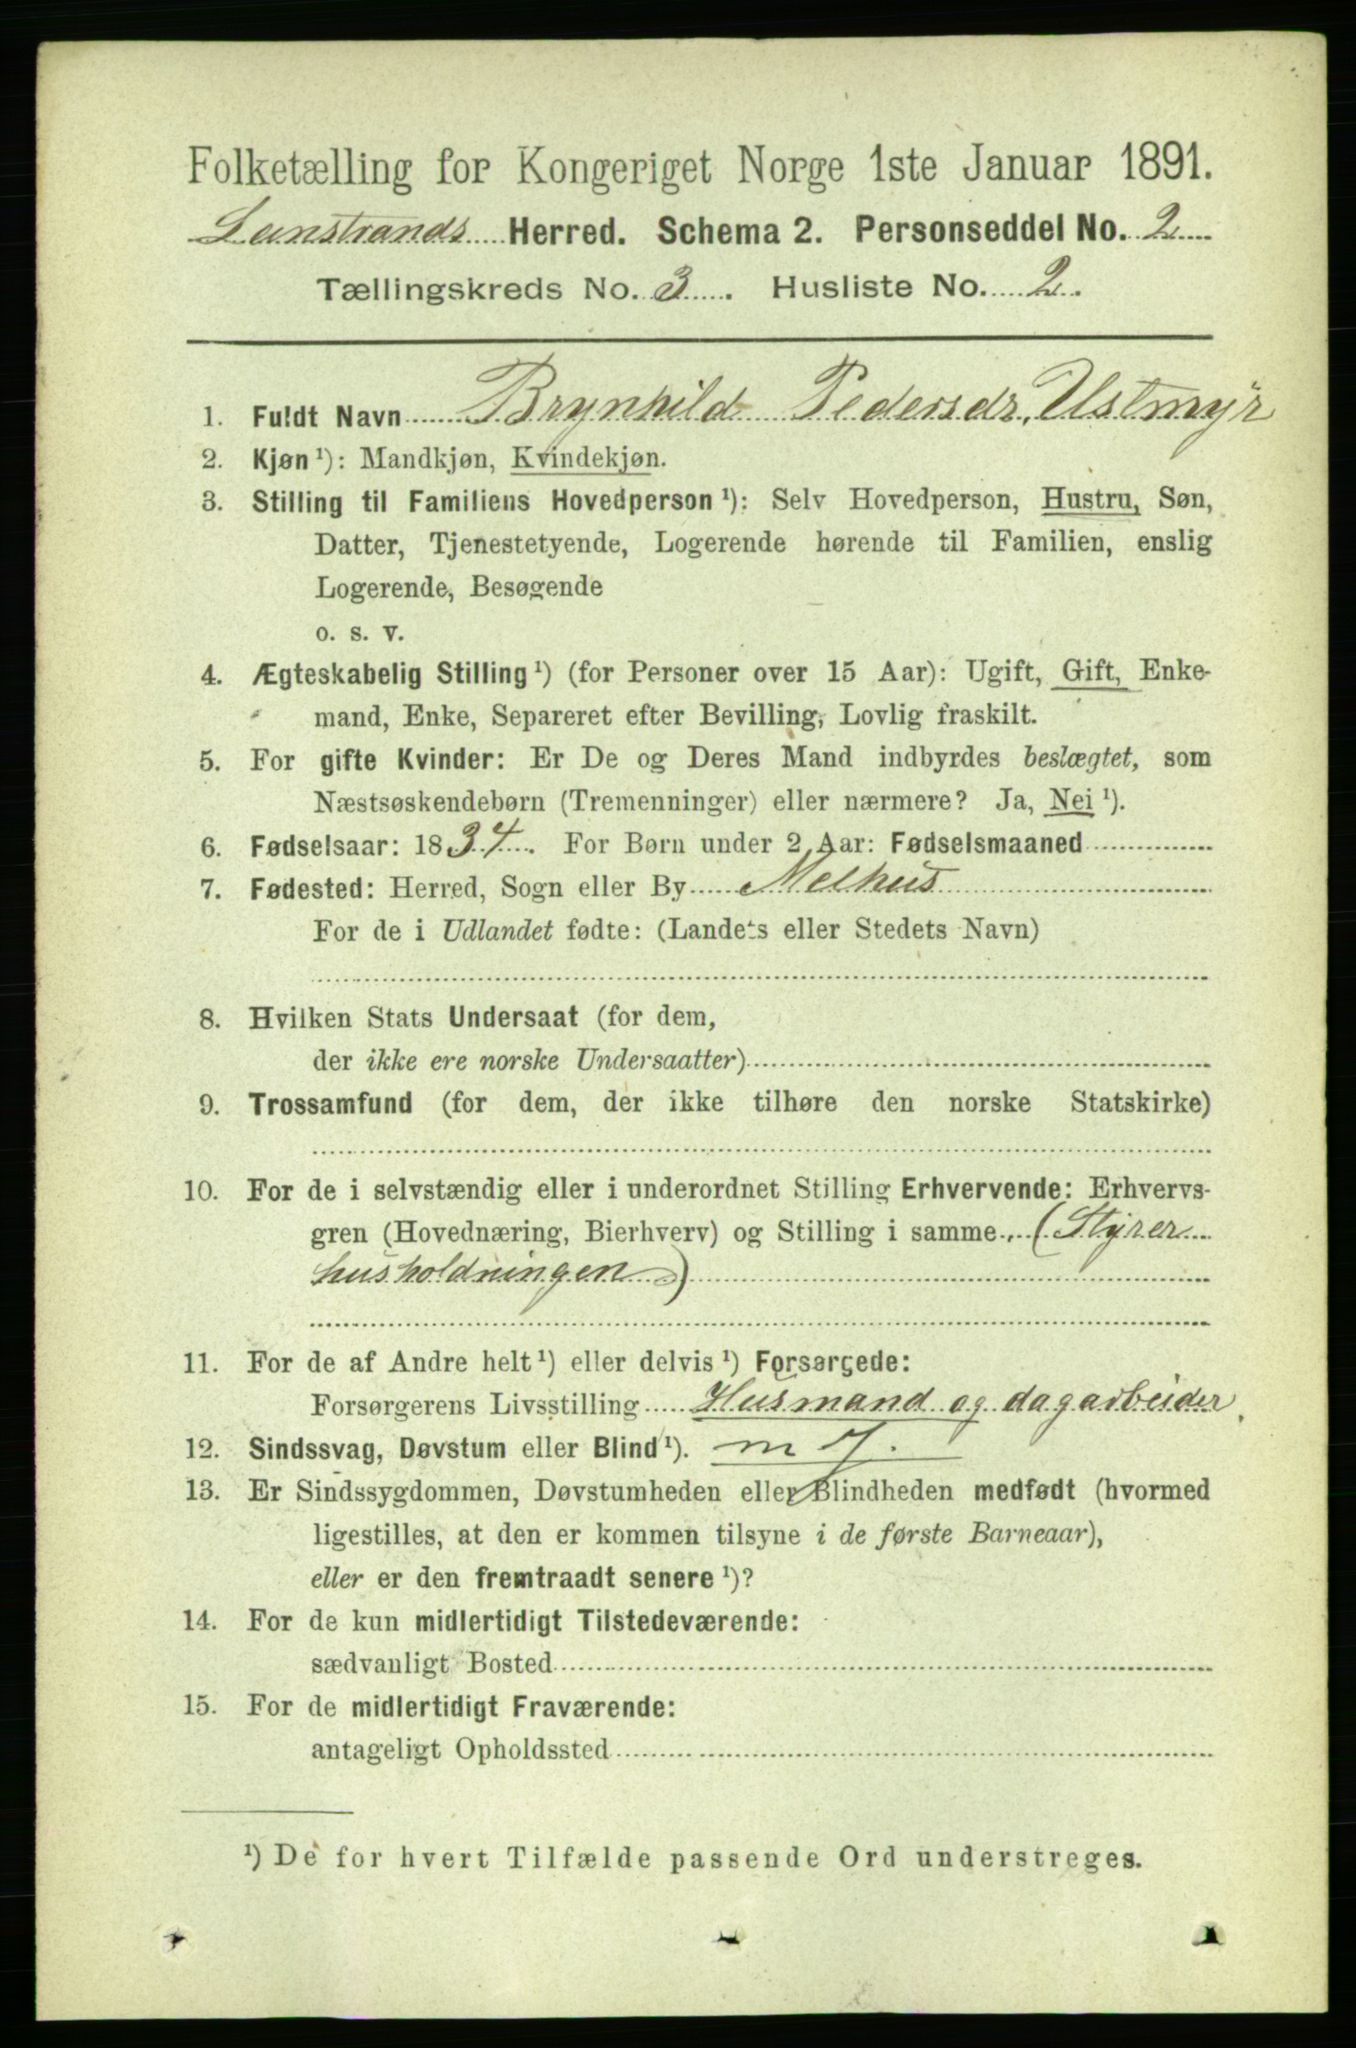 Folketælling for Kongeriget Norge 1ste Januar 1891.
Leinstrands Herred. Schema 2. Personseddel No. 2
Tællingskreds No. 3. Husliste No. 2.
1. Fuldt Navn Brynhild Pedersdr. Ustmyr
2. Kjøn ¹): Mandkjøn, Kvindekjøn.
3. Stilling til Familiens Hovedperson ¹): Selv Hovedperson, Hustru, Søn,
Datter, Tjenestetyende, Logerende hørende til Familien, enslig
Logerende, Besøgende
o. s. v.
4. Ægteskabelig Stilling ¹) (for Personer over 15 Aar): Ugift, Gift, Enke-
mand, Enke, Separeret efter Bevilling, Lovlig fraskilt.
5. For gifte Kvinder: Er De og Deres Mand indbyrdes beslægtet, som
Næstsøskendebørn (Tremenninger) eller nærmere? Ja, Nei ¹).
6. Fødselsaar: 1834. For Børn under 2 Aar: Fødselsmaaned
7. Fødested: Herred, Sogn eller By Melhus
For de i Udlandet fødte: (Landets eller Stedets Navn)
8. Hvilken Stats Undersaat (for dem,
der ikke ere norske Undersaatter)
9. Trossamfund (for dem, der ikke tilhøre den norske Statskirke)
10. For de i selvstændig eller i underordnet Stilling Erhvervende: Erhvervs-
gren (Hovednæring, Bierhverv) og Stilling i samme (Styrer
husholdningen)
11. For de af Andre helt ¹) eller delvis ¹) Forsørgede:
Forsørgerens Livsstilling Husmand og dagarbeider
12. Sindssvag, Døvstum eller Blind ¹).
13. Er Sindssygdommen, Døvstumheden eller Blindheden medfødt (hvormed
ligestilles, at den er kommen tilsyne i de første Barneaar),
eller er den fremtraadt senere ¹)?
14. For de kun midlertidigt Tilstedeværende:
sædvanligt Bosted
15. For de midlertidigt Fraværende:
antageligt Opholdssted
¹) De for hvert Tilfælde passende Ord understreges.